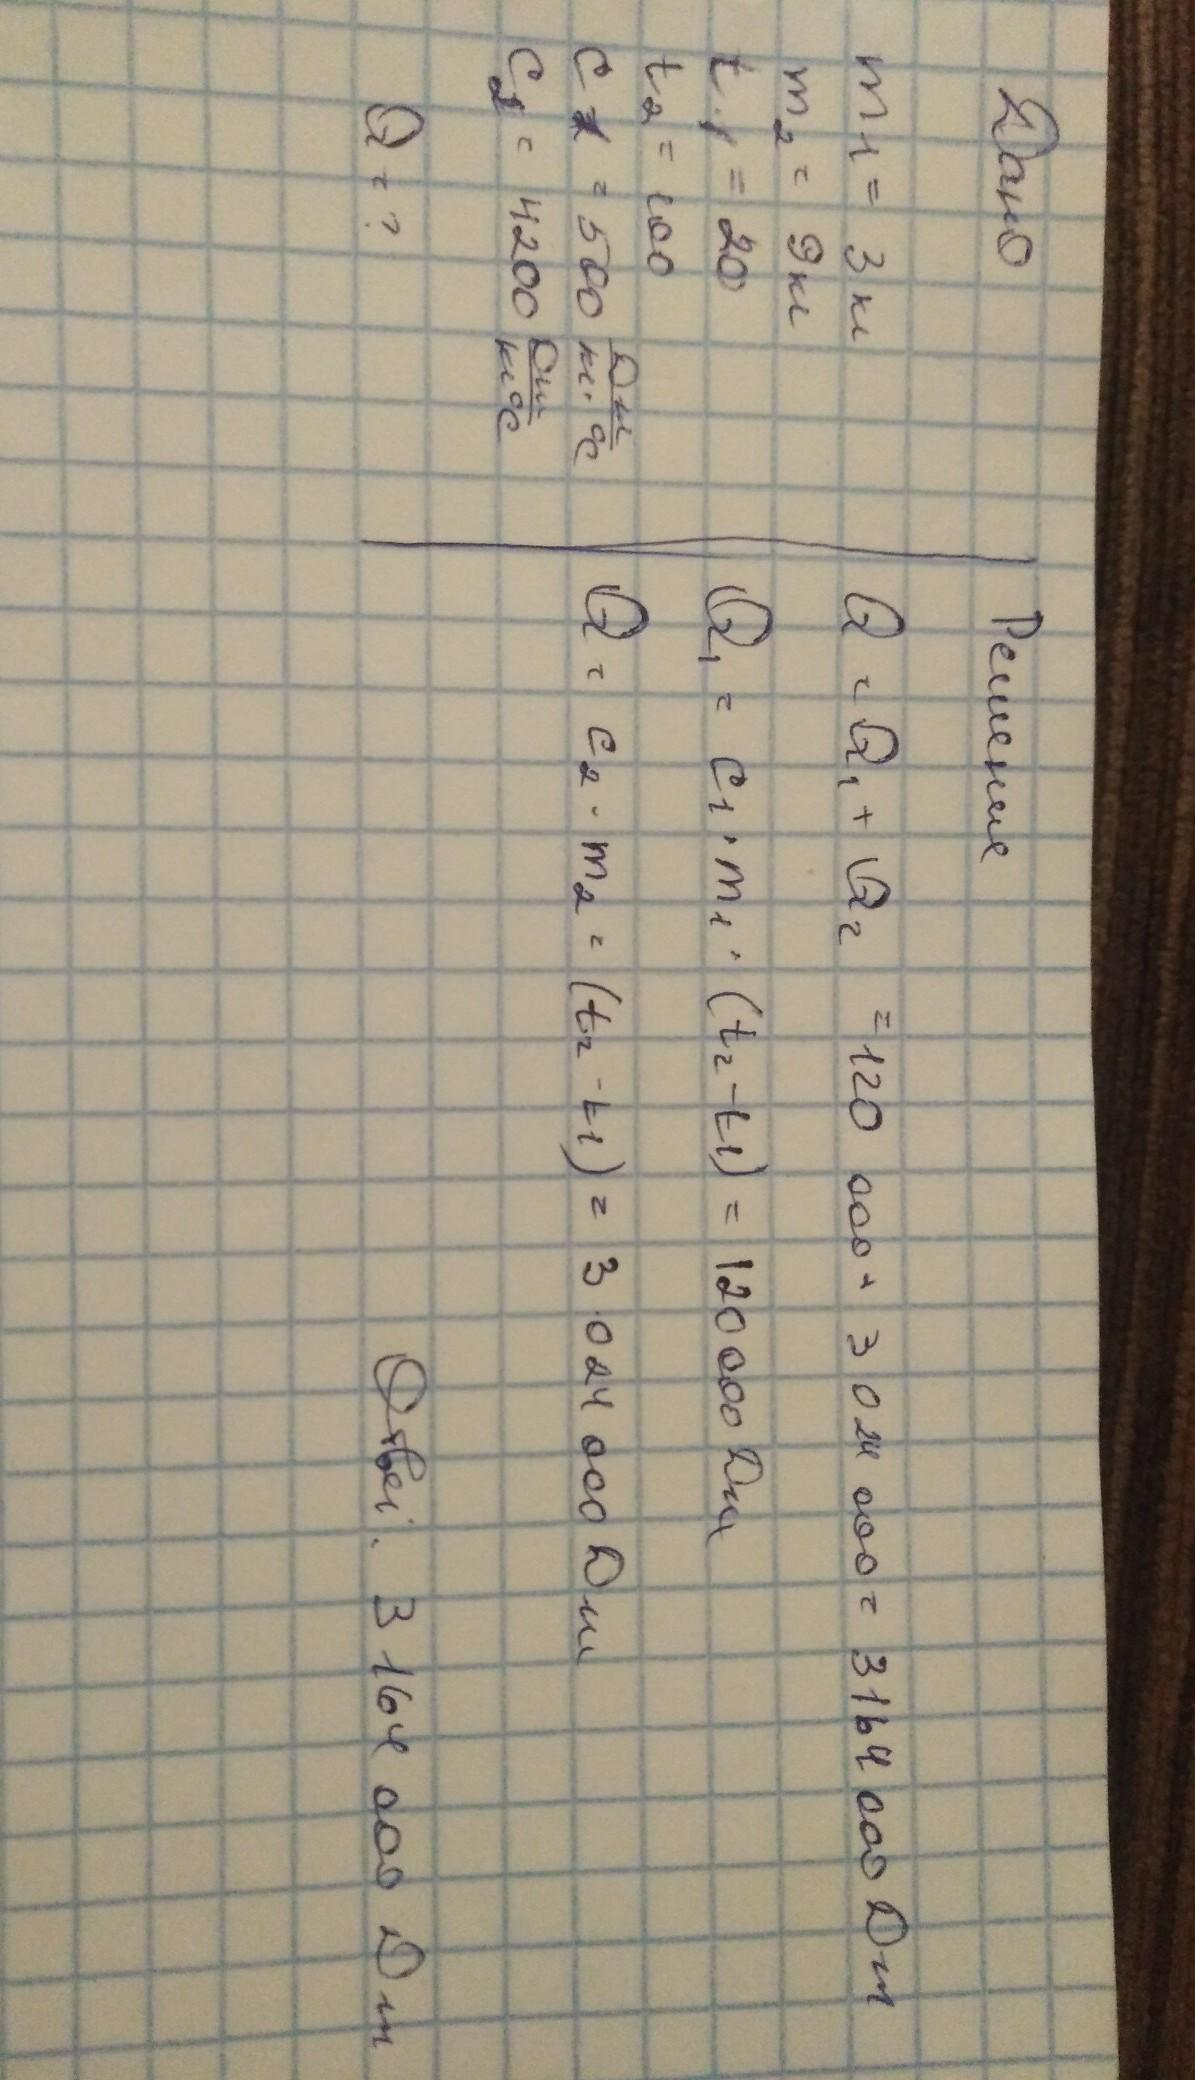 Дано
m1 = 3 кг
m2 = 9 кг
t1 = 20
t2 = 100
c1 = 500 Дж/кг·°C
c2 = 4200 Дж/кг°C
Q = ?
Решение
Q = Q1 + Q2 = 120 000 + 3 024 000 = 3164 000 Дж
Q1 = c1 · m1 · (t2 - t1) = 120 000 Дж
Q = c2 · m2 = (t2 - t1) = 3 024 000 Дж
Ответ: 3 164 000 Дж